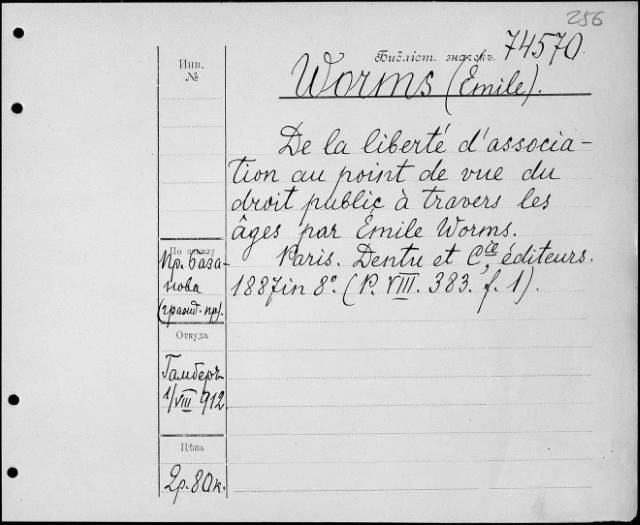 256
Библіот. значекъ. 74570.
Worms (Emile).
Инв.
№
De la liberté d'associa-
tion au point de vue du
droit public à travers les
âges par Émile Worms.
Paris. Dentu et Cie, éditeurs.
1887 in 8°. (P. VIII. 383. f. 1).
По заказу
Пр. База-
нова
(гражд. пр).
Откуда
Гамберъ
1/VIII 912.
Цѣна
2р. 80к.